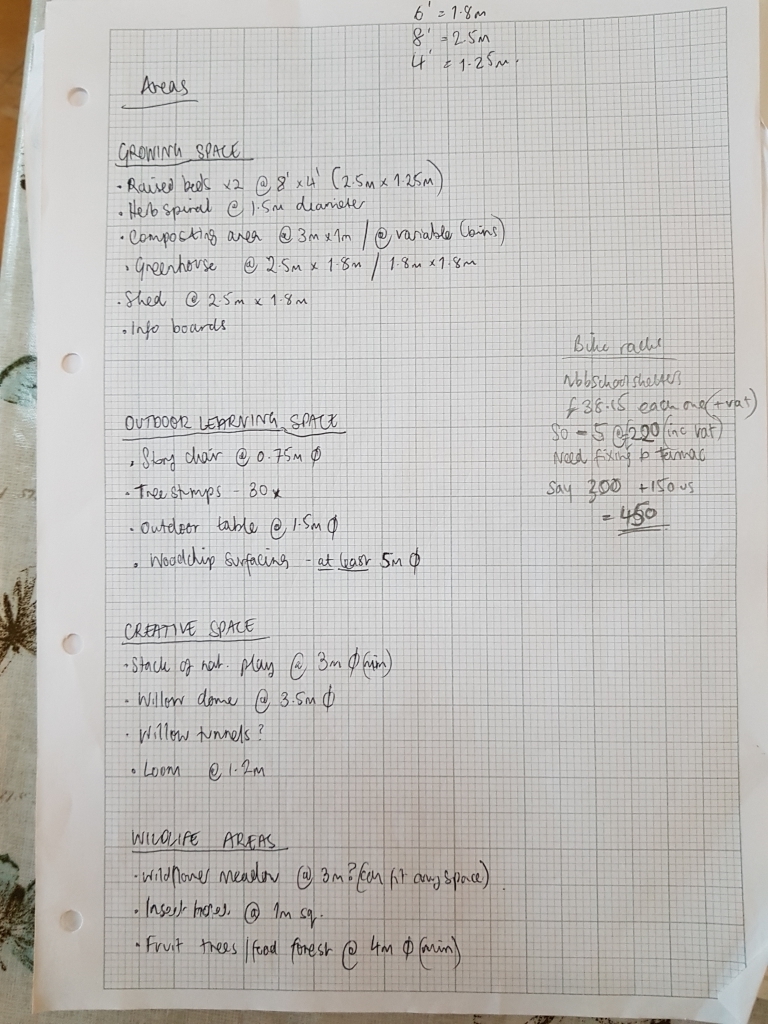 6' = 1.8m
8' = 2.5m
4' = 1.25m.
Areas
GROWING SPACE
• Raised beds x2 @ 8' x 4' (2.5m x 1.25m)
• Herb spiral @ 1.5m diameter
• Composting area @ 3m x 1m / @ variable (bins)
• Greenhouse @ 2.5m x 1.8m / 1.8m x 1.8m
• Shed @ 2.5m x 1.8m
• Info boards
Bike racks
£38.15 each one (+vat)
So - 5 @ £220 (inc vat)
Need fixing to tarmac
Say 300 + 150 us
= 450
OUTDOOR LEARNING SPACE
• Story chair @ 0.75m ϕ
• Tree stumps - 30x
• Outdoor table @ 1.5m ϕ
• Woodchip surfacing - at least 5m ϕ
CREATIVE SPACE
• Stack of nat. play @ 3m ϕ (min)
• Willow dome @ 3.5m ϕ
• Willow tunnels?
• Loom @ 1.2m
WILDLIFE AREAS
• Wildflower meadow @ 3m? (can fit any space)
• Insect hotel @ 1m sq.
• Fruit trees / food forest @ 4m ϕ (min)